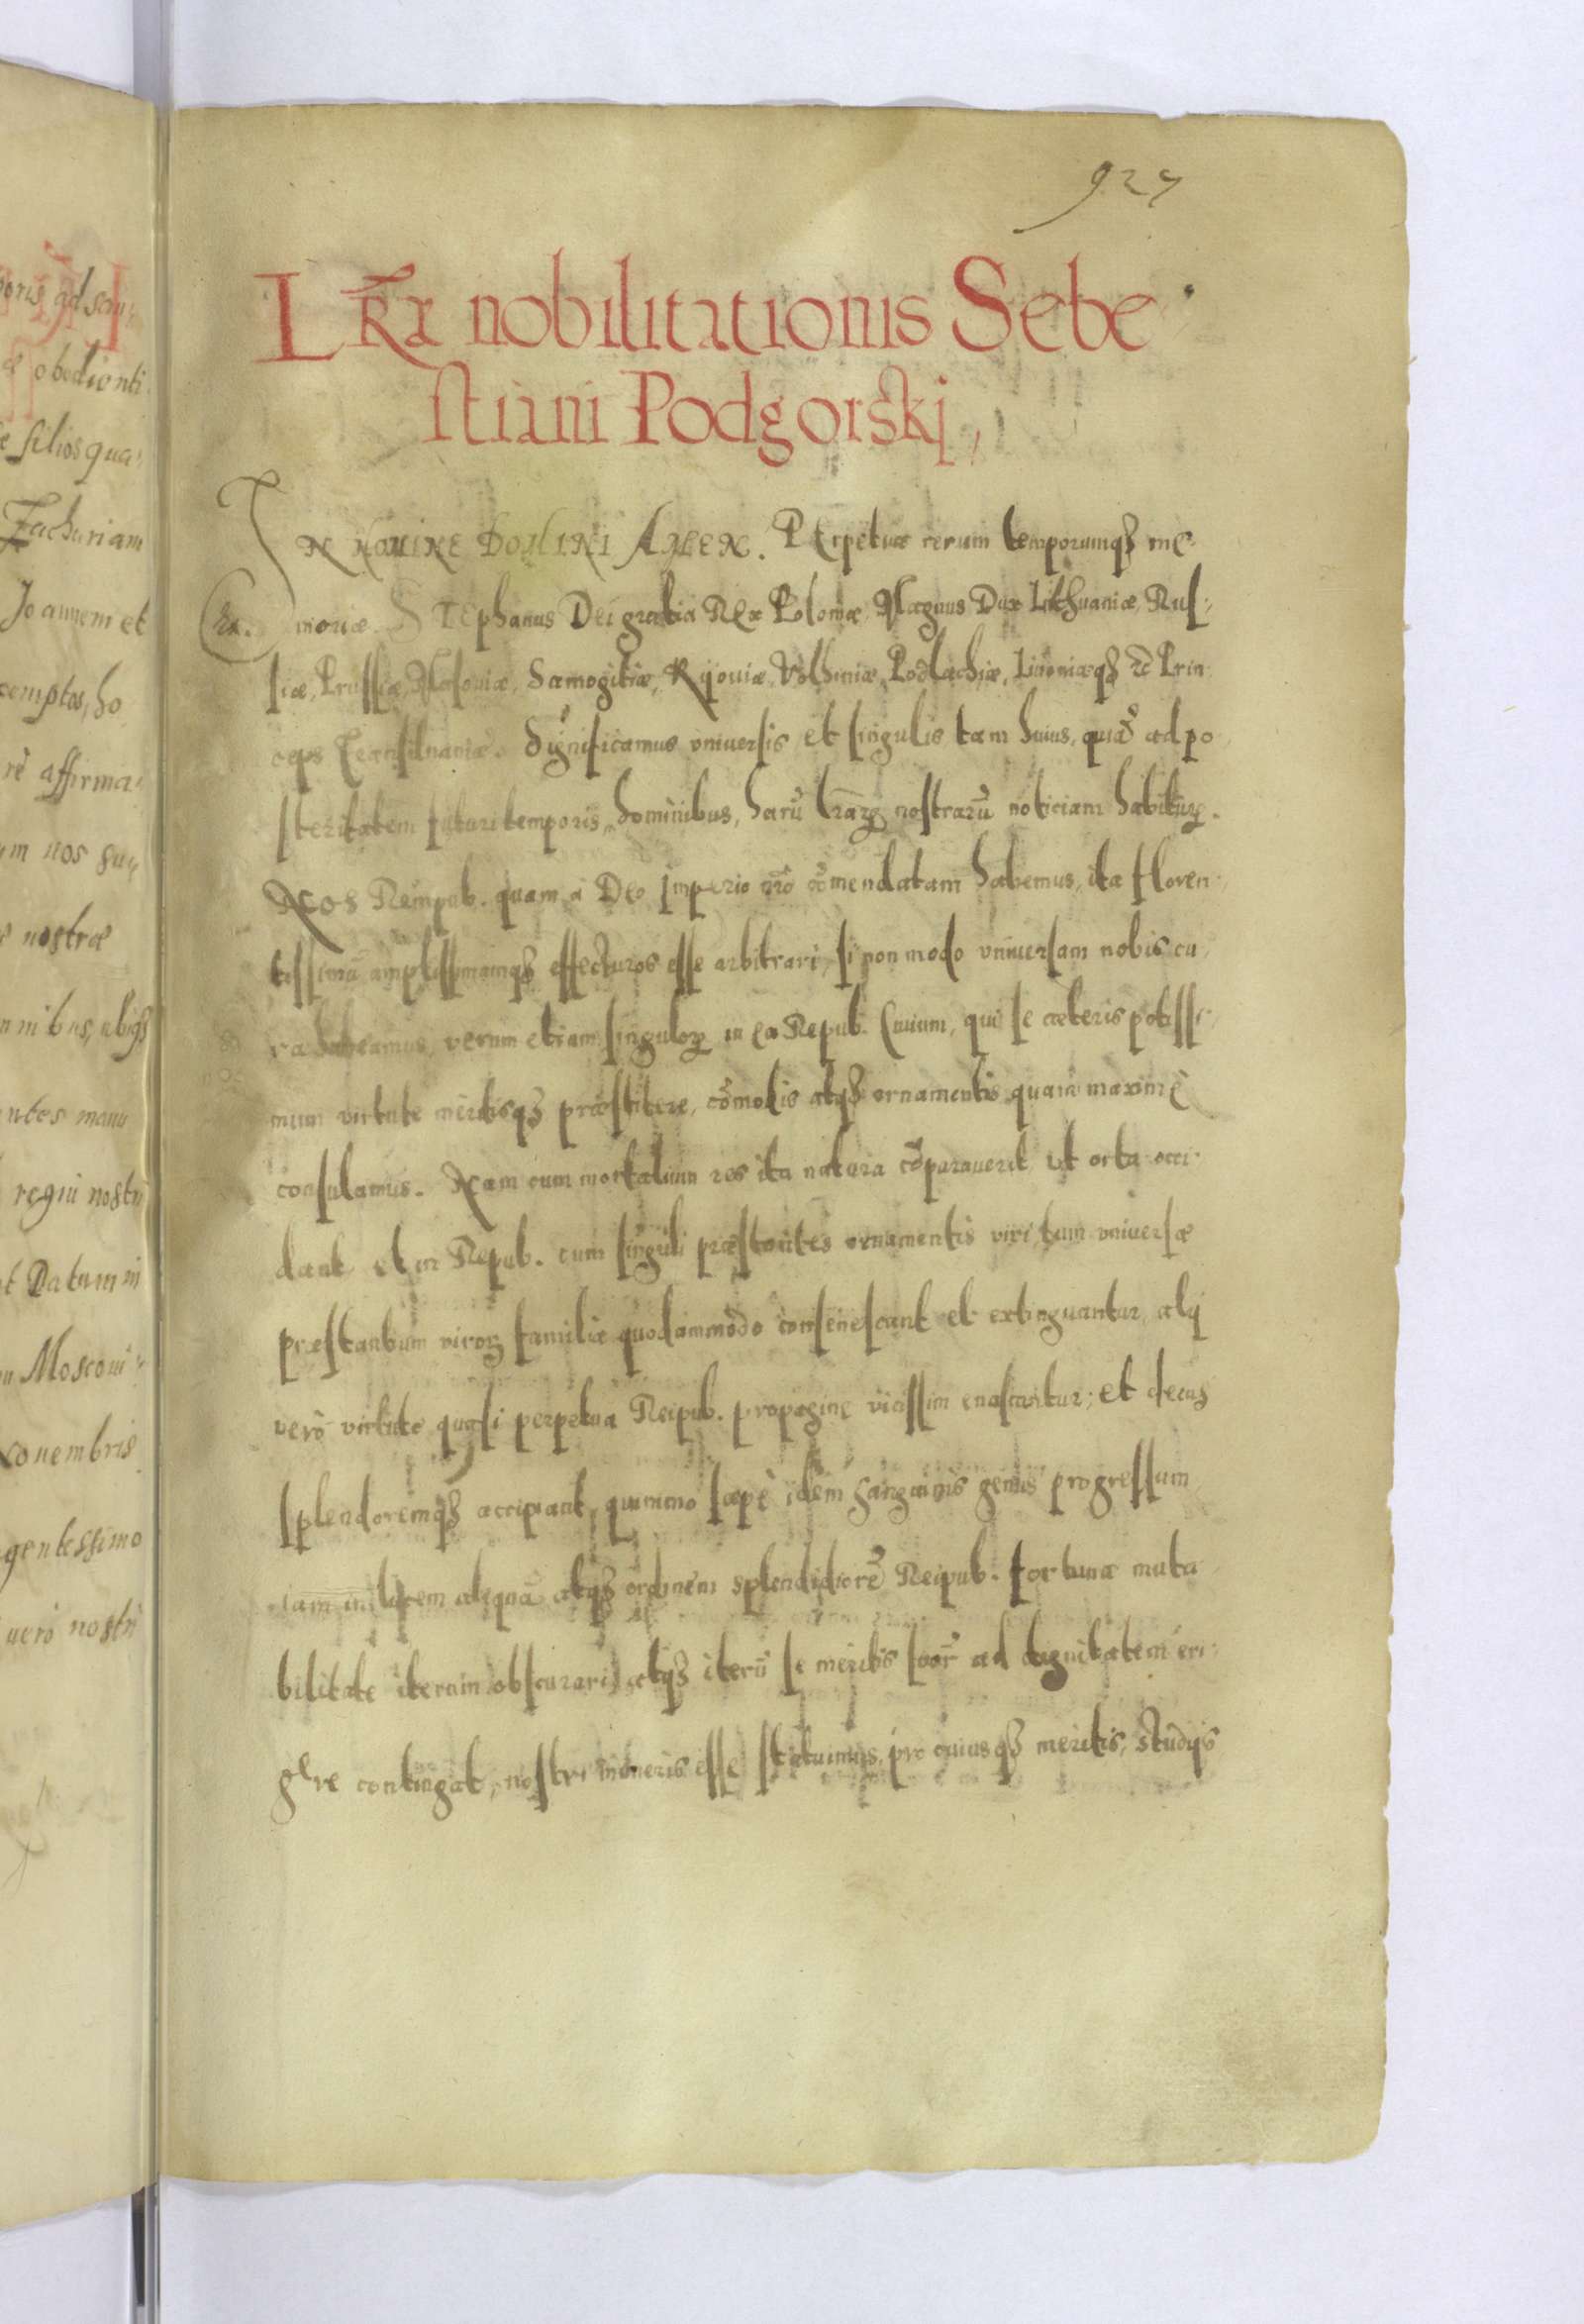 oris ad seru
obedienti
filios qua
Zachariam
Joannem et
cemptos, ho
rè affirma
um nos su
e nostræ
nnibus, ubiqз
ntes manu
regni nostri
t Datum in
Moscoui
Nouembris
gentessimo
uerò nostri
927
Lr̄a nobilitationis Sebe
stiani Podgorskj,
IN NOMINE DOMINI AMEN. PErpetuæ rerum temporumqз me
moriæ. STEphanus Dei gratia REx Poloniæ, Magnus Dux Lithuaniæ, Rus
siæ, Prussiæ, Masouiæ, Samogitiæ, Kijouiæ, Volhiniæ, Podlachiæ, Liuoniæqз &c Prin
ceps Transiluaniæ. Significamus vniuersis et singulis tam huius, quā ad po
steritatem futuri temporis, hominibus, harū lrārꝝ nostrarū noticiam habiturꝝ.
NOS Rempub. quam à Deo imperio nrō cōmendatam habemus, ita floren
tissimā amplissimamqз effecturos esse arbitrari, si non modo vniuersam nobis cu
ræ habeamus, verum etiam singulorꝝ in ea Repub. Ciuium, qui se cæteris potissi
mum virtute meritisqз præstitere, cōmodis atqз ornamentis quam maximè
consulamus. Nam cum mortalium res ita natura cōparauerit vt orta occi
dant et in Repub. cum singuli præstantes ornamentis viri, tum vniuersæ
præstantium virorꝝ familiæ quodammodo consenescant et extinguantur, alij
verò virtute quasi perpetua Reipub. propagine vicissim enascantur; et decus
splendoremqз accipiant, quinimo sæpè idem sanguinis genus progressum
iam in lucem aliquā atqз ordinem splendidiorē Reipub. fortunæ muta
bilitate iterum obscurari atqз iterū se meritis suor̄ ad dignitatem eri
gere contingat, nostri muneris esse statuimus, pro cuiusqз meritis, studijs